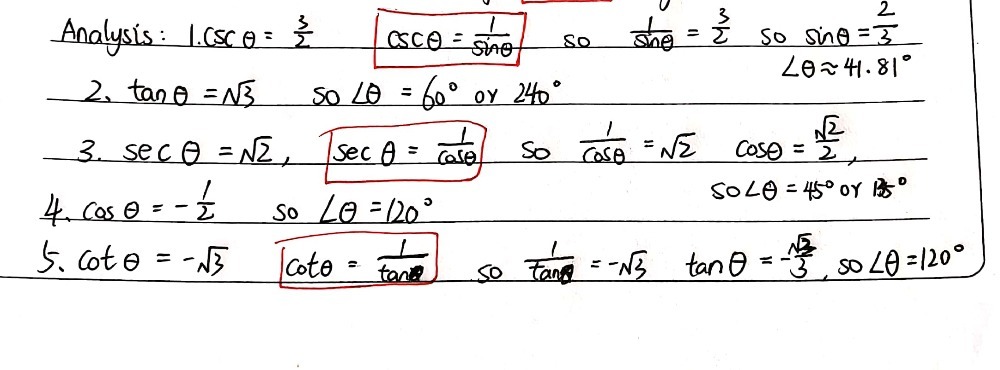 Analysis: 1. csc θ = 3/2 csc θ = 1/sinθ so 1/sinθ = 3/2 so sinθ = 2/3
∠θ ≈ 41.81°
2. tan θ = √3 so ∠θ = 60° or 240°
3. sec θ = √2, sec θ = 1/cosθ so 1/cosθ = √2 cosθ = √2/2,
so∠θ = 45° or °
4. cos θ = -1/2 so ∠θ = 120°
5. cot θ = -√3 cotθ = 1/tanθ so 1/tanθ = -√3 tanθ = -√3/3, so∠θ = 120°